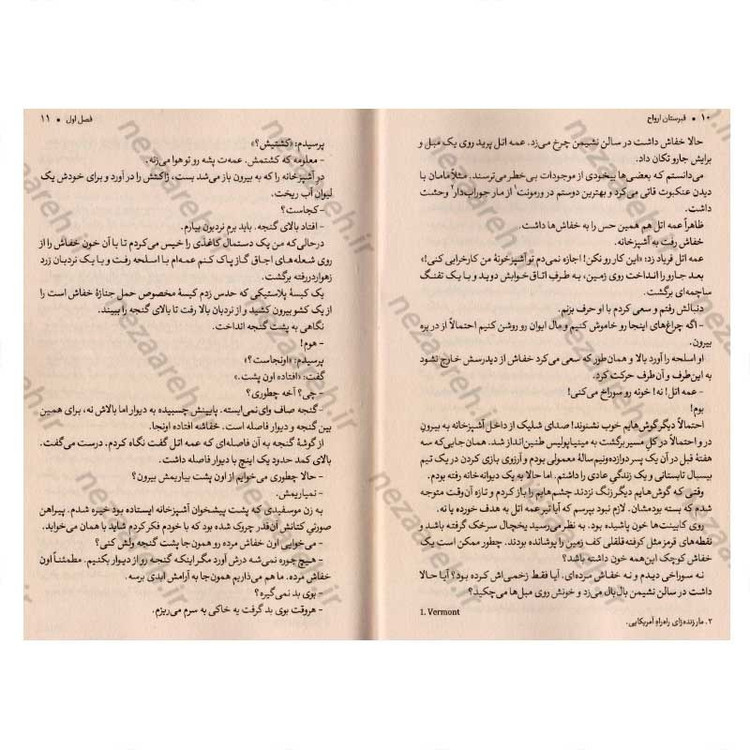 ۱۰ • قبرستان ارواح
حالا خفاش داشت در سالن نشیمن چرخ می‌زد. عمه اتل پرید روی یک مبل و
برایش جارو تکان داد.
می‌دانستم که بعضی‌ها بیخودی از موجودات بی‌خطر می‌ترسند. مثلاً مامان با
دیدن عنکبوت قاتی می‌کرد و بهترین دوستم در ورمونت۱ از مار جوراب‌دار۲ وحشت
داشت.
ظاهراً عمه اتل هم همین حس را به خفاش‌ها داشت.
خفاش رفت به آشپزخانه.
عمه اتل فریاد زد: «این کار رو نکن! اجازه نمی‌دم تو آشپزخونهٔ من کارخرابی کنی!»
بعد جارو را انداخت روی زمین، به طرف اتاق‌خوابش دوید و با یک تفنگ
ساچمه‌ای برگشت.
دنبالش رفتم و سعی کردم با او حرف بزنم.
- اگه چراغ‌های اینجا رو خاموش کنیم و مال ایوان رو روشن کنیم احتمالاً از در بره
بیرون.
او اسلحه را آورد بالا و همان‌طور که سعی می‌کرد خفاش از دیدرسش خارج نشود
به این‌طرف و آن‌طرف حرکت کرد.
- عمه اتل! نه! خونه رو سوراخ می‌کنی!
بوم!
احتمالاً دیگر گوش‌هایم خوب نشنوند! صدای شلیک از داخل آشپزخانه به بیرون
و احتمالاً در کل مسیر برگشت به مینیاپولیس طنین‌انداز شد. همان جایی‌که سه
هفتهٔ قبل در آن یک پسر دوازده‌ونیم‌سالهٔ معمولی بودم و آرزوی بازی کردن در یک تیم
بیسبال تابستانی و یک زندگی عادی را داشتم. اما حالا به یک دیوانه‌خانه رفته بودم.
وقتی که گوش‌هایم دیگر زنگ نزدند چشم‌هایم را باز کردم و تازه آن‌وقت متوجه
شدم که بسته بودمشان. لازم نبود بپرسم که آیا تیر عمه اتل به هدف خورده یا نه.
روی کابینت‌ها خون پاشیده بود. به نظر می‌رسید یخچال سرخک گرفته باشد و
نقطه‌های قرمز مثل کفترقلقلی کف زمین را پوشانده بودند. چطور ممکن است یک
خفاش کوچک این‌همه خون داشته باشد؟
نه سوراخی دیدم و نه خفاش مرده‌ای. آیا فقط زخمی‌اش کرده بود؟ آیا حالا
داشت در سالن نشیمن بال‌بال می‌زد و خونش روی مبل‌ها می‌چکید؟
1. Vermont
۲. مار زنده‌زای راه‌راه آمریکایی.
فصل اول • ۱۱
پرسیدم: «کشتیش؟»
- معلومه که کشتمش. عمه‌ت پشه رو تو هوا می‌زنه.
در آشپزخانه را که به بیرون باز می‌شد بست، ژاکتش را در آورد و برای خودش یک
لیوان آب ریخت.
- کجاست؟
- افتاد بالای گنجه. باید برم نردبون بیارم.
درحالی‌که من یک دستمال کاغذی را خیس می‌کردم تا با آن خون خفاش را از
روی شعله‌های اجاق گاز پاک کنم عمه‌ام با اسلحه رفت و با یک نردبان زرد
زهواردررفته برگشت.
یک کیسهٔ پلاستیکی که حدس زدم کیسهٔ مخصوص حمل جنازهٔ خفاش است را
از یک کشو بیرون کشید و از نردبان بالا رفت تا بالای گنجه را ببیند.
نگاهی به پشت گنجه انداخت.
- هوم!
پرسیدم: «اونجاست؟»
گفت: «افتاده اون پشت.»
- چی؟ آخه چطوری؟
- گنجه صاف وای‌نمی‌ایسته. پایینش چسبیده به دیوار اما بالاش نه، برای همین
بین گنجه و دیوار فاصله است. خفاشه افتاده اونجا.
از گوشهٔ گنجه به آن فاصله‌ای که عمه اتل گفت نگاه کردم. درست می‌گفت.
بالای کمد حدود یک اینچ با دیوار فاصله داشت.
- حالا چطوری می‌خوایم از اون پشت بیاریمش بیرون؟
- نمیاریمش.
به زن موسفیدی که پشت پیشخوان آشپزخانه ایستاده بود خیره شدم. پیراهن
صورتی کتانش آن‌قدر چروک شده بود که با خودم فکر کردم شاید با همان می‌خوابد.
- می‌خوایی اون خفاش مرده رو همون‌جا پشت گنجه ولش کنی؟
- هیچ‌جوره نمی‌شه درش آورد مگر اینکه گنجه رو از دیوار بکنیم. مطمئناً اون
خفاش مرده. ما هم می‌ذاریم همون‌جا به آرامش ابدی برسه.
- بوی بد نمی‌گیره؟
- هروقت بوی بد گرفت یه خاکی به سرم می‌ریزم.
nezaareh.ir